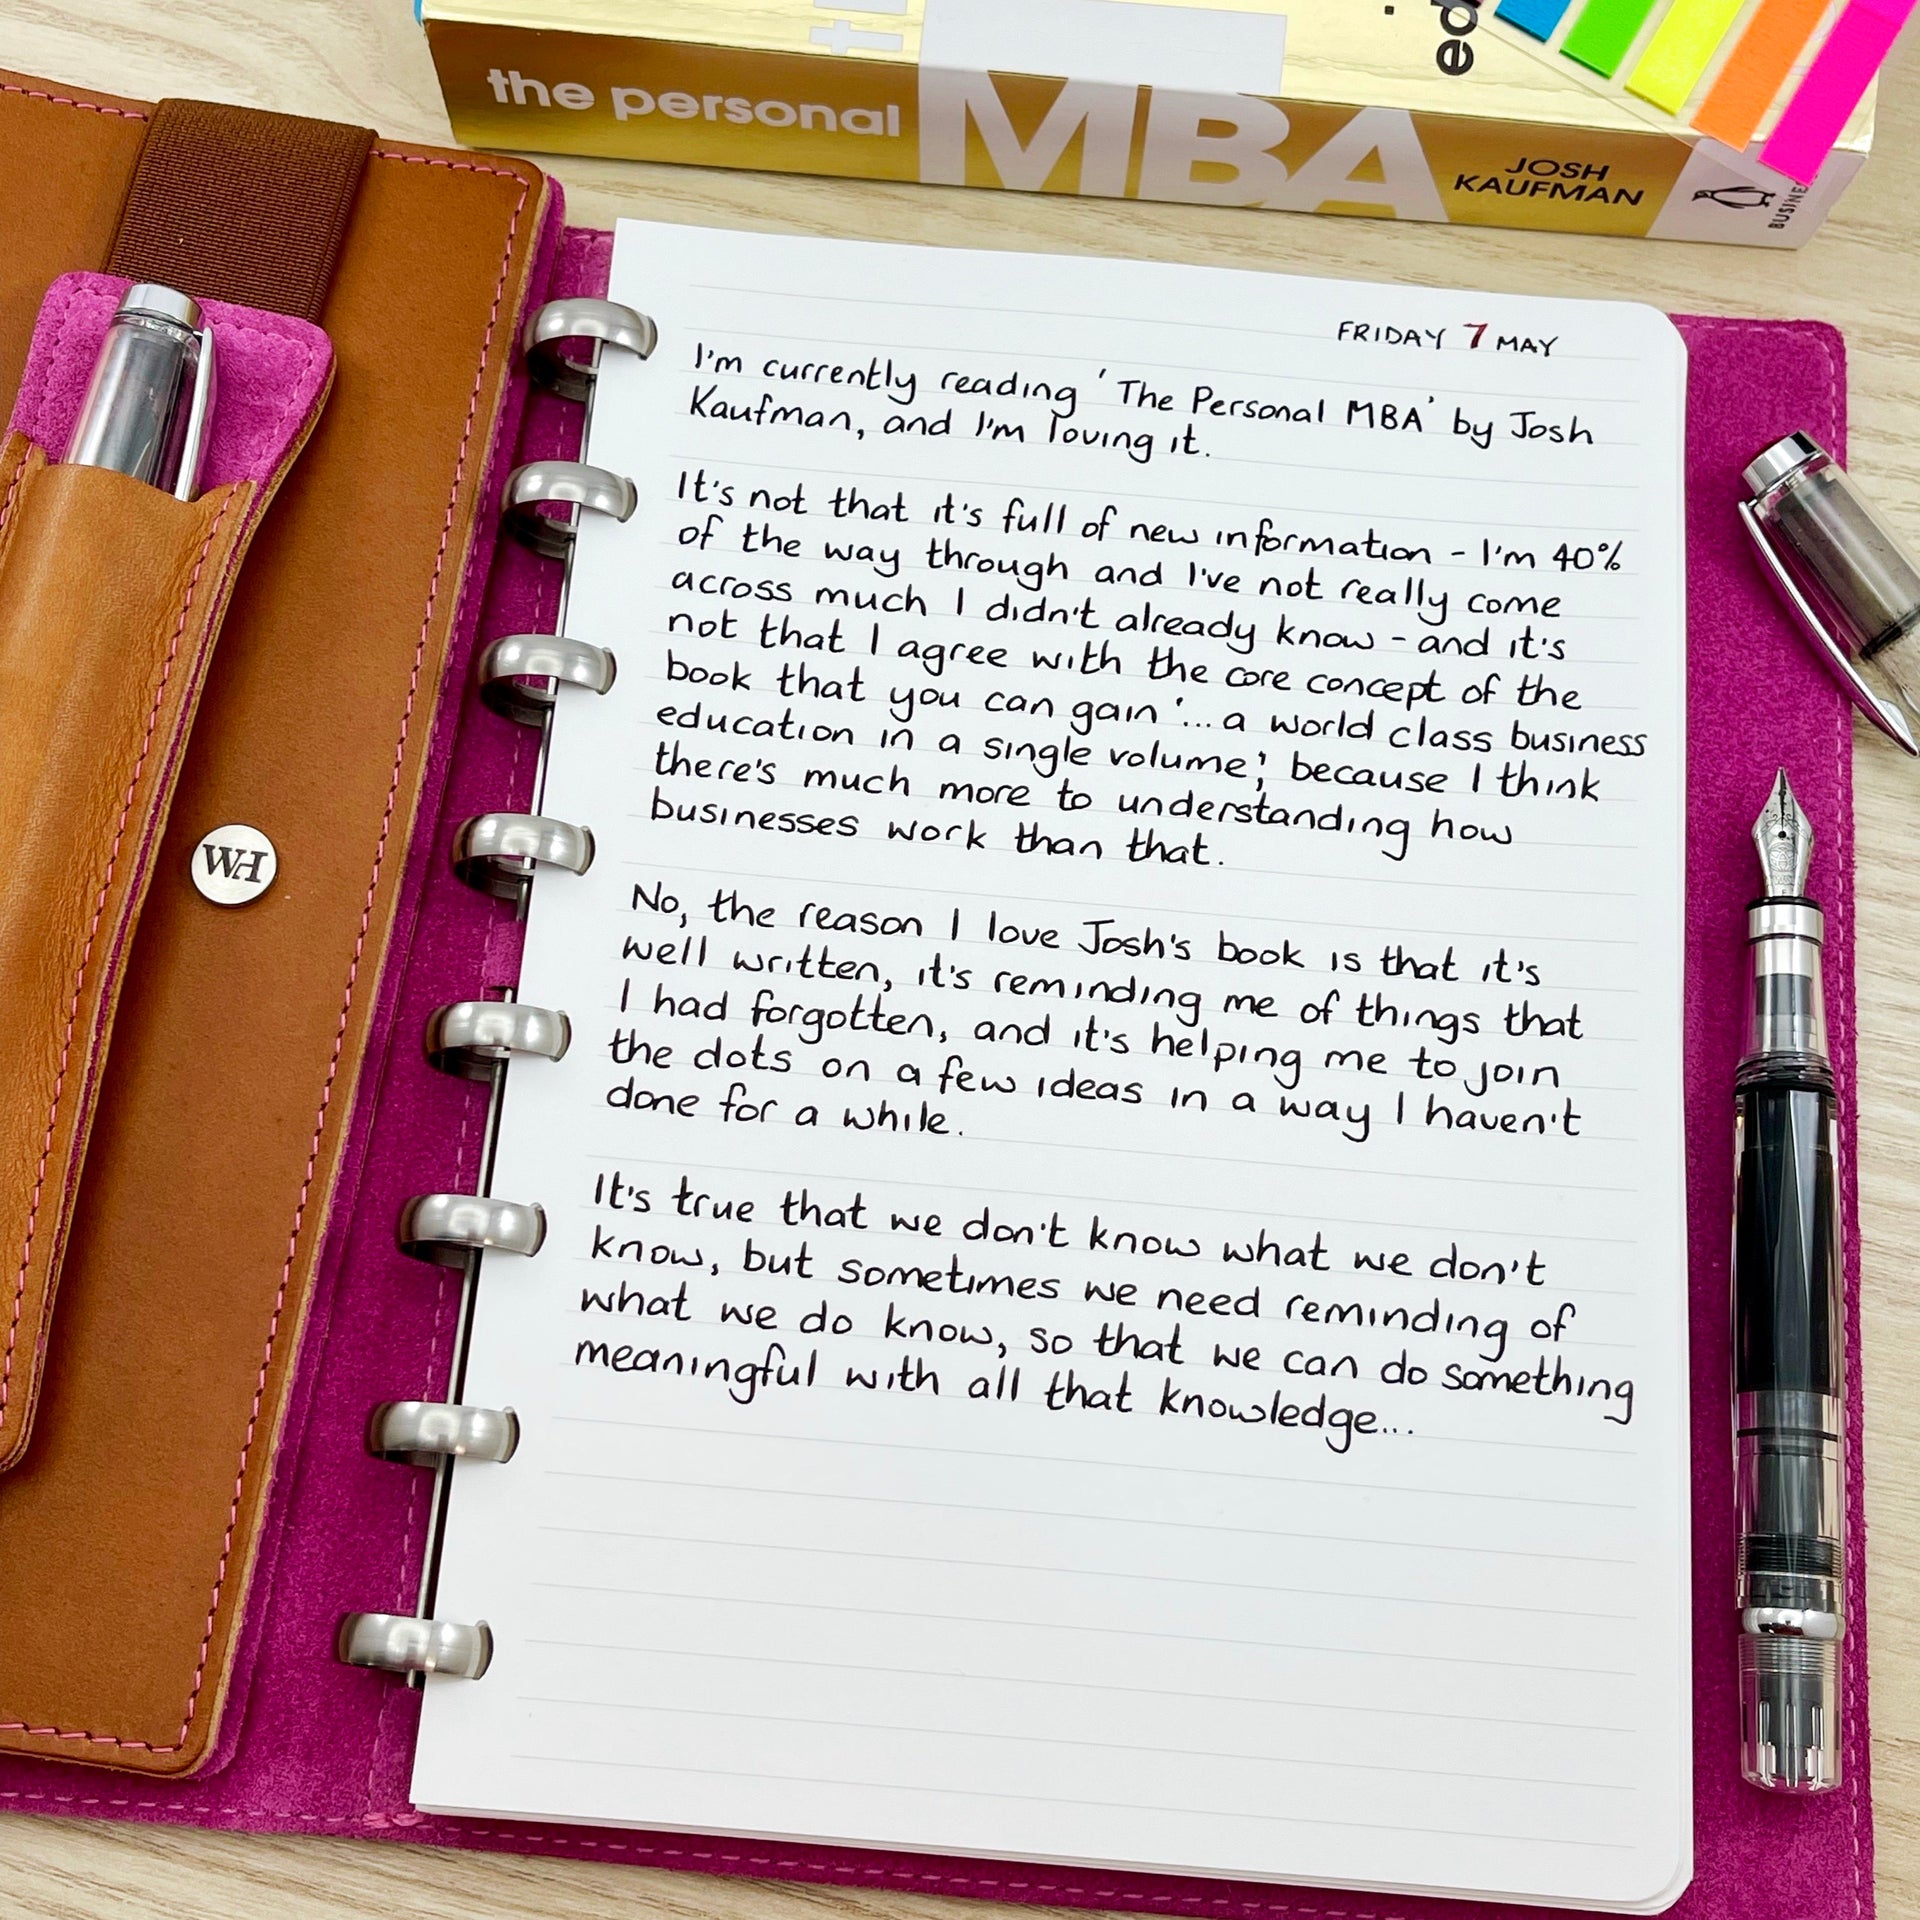 the personal MBA JOSH KAUFMAN
ed
WH
FRIDAY 7 MAY
I'm currently reading 'The Personal MBA' by Josh
Kaufman, and I'm loving it.
It's not that it's full of new information - I'm 40%
of the way through and I've not really come
across much I didn't already know - and it's
not that I agree with the core concept of the
book that you can gain '... a world class business
education in a single volume', because I think
there's much more to understanding how
businesses work than that.
No, the reason I love Josh's book is that it's
well written, it's reminding me of things that
I had forgotten, and it's helping me to join
the dots on a few ideas in a way I haven't
done for a while.
It's true that we don't know what we don't
know, but sometimes we need reminding of
what we do know, so that we can do something
meaningful with all that knowledge...